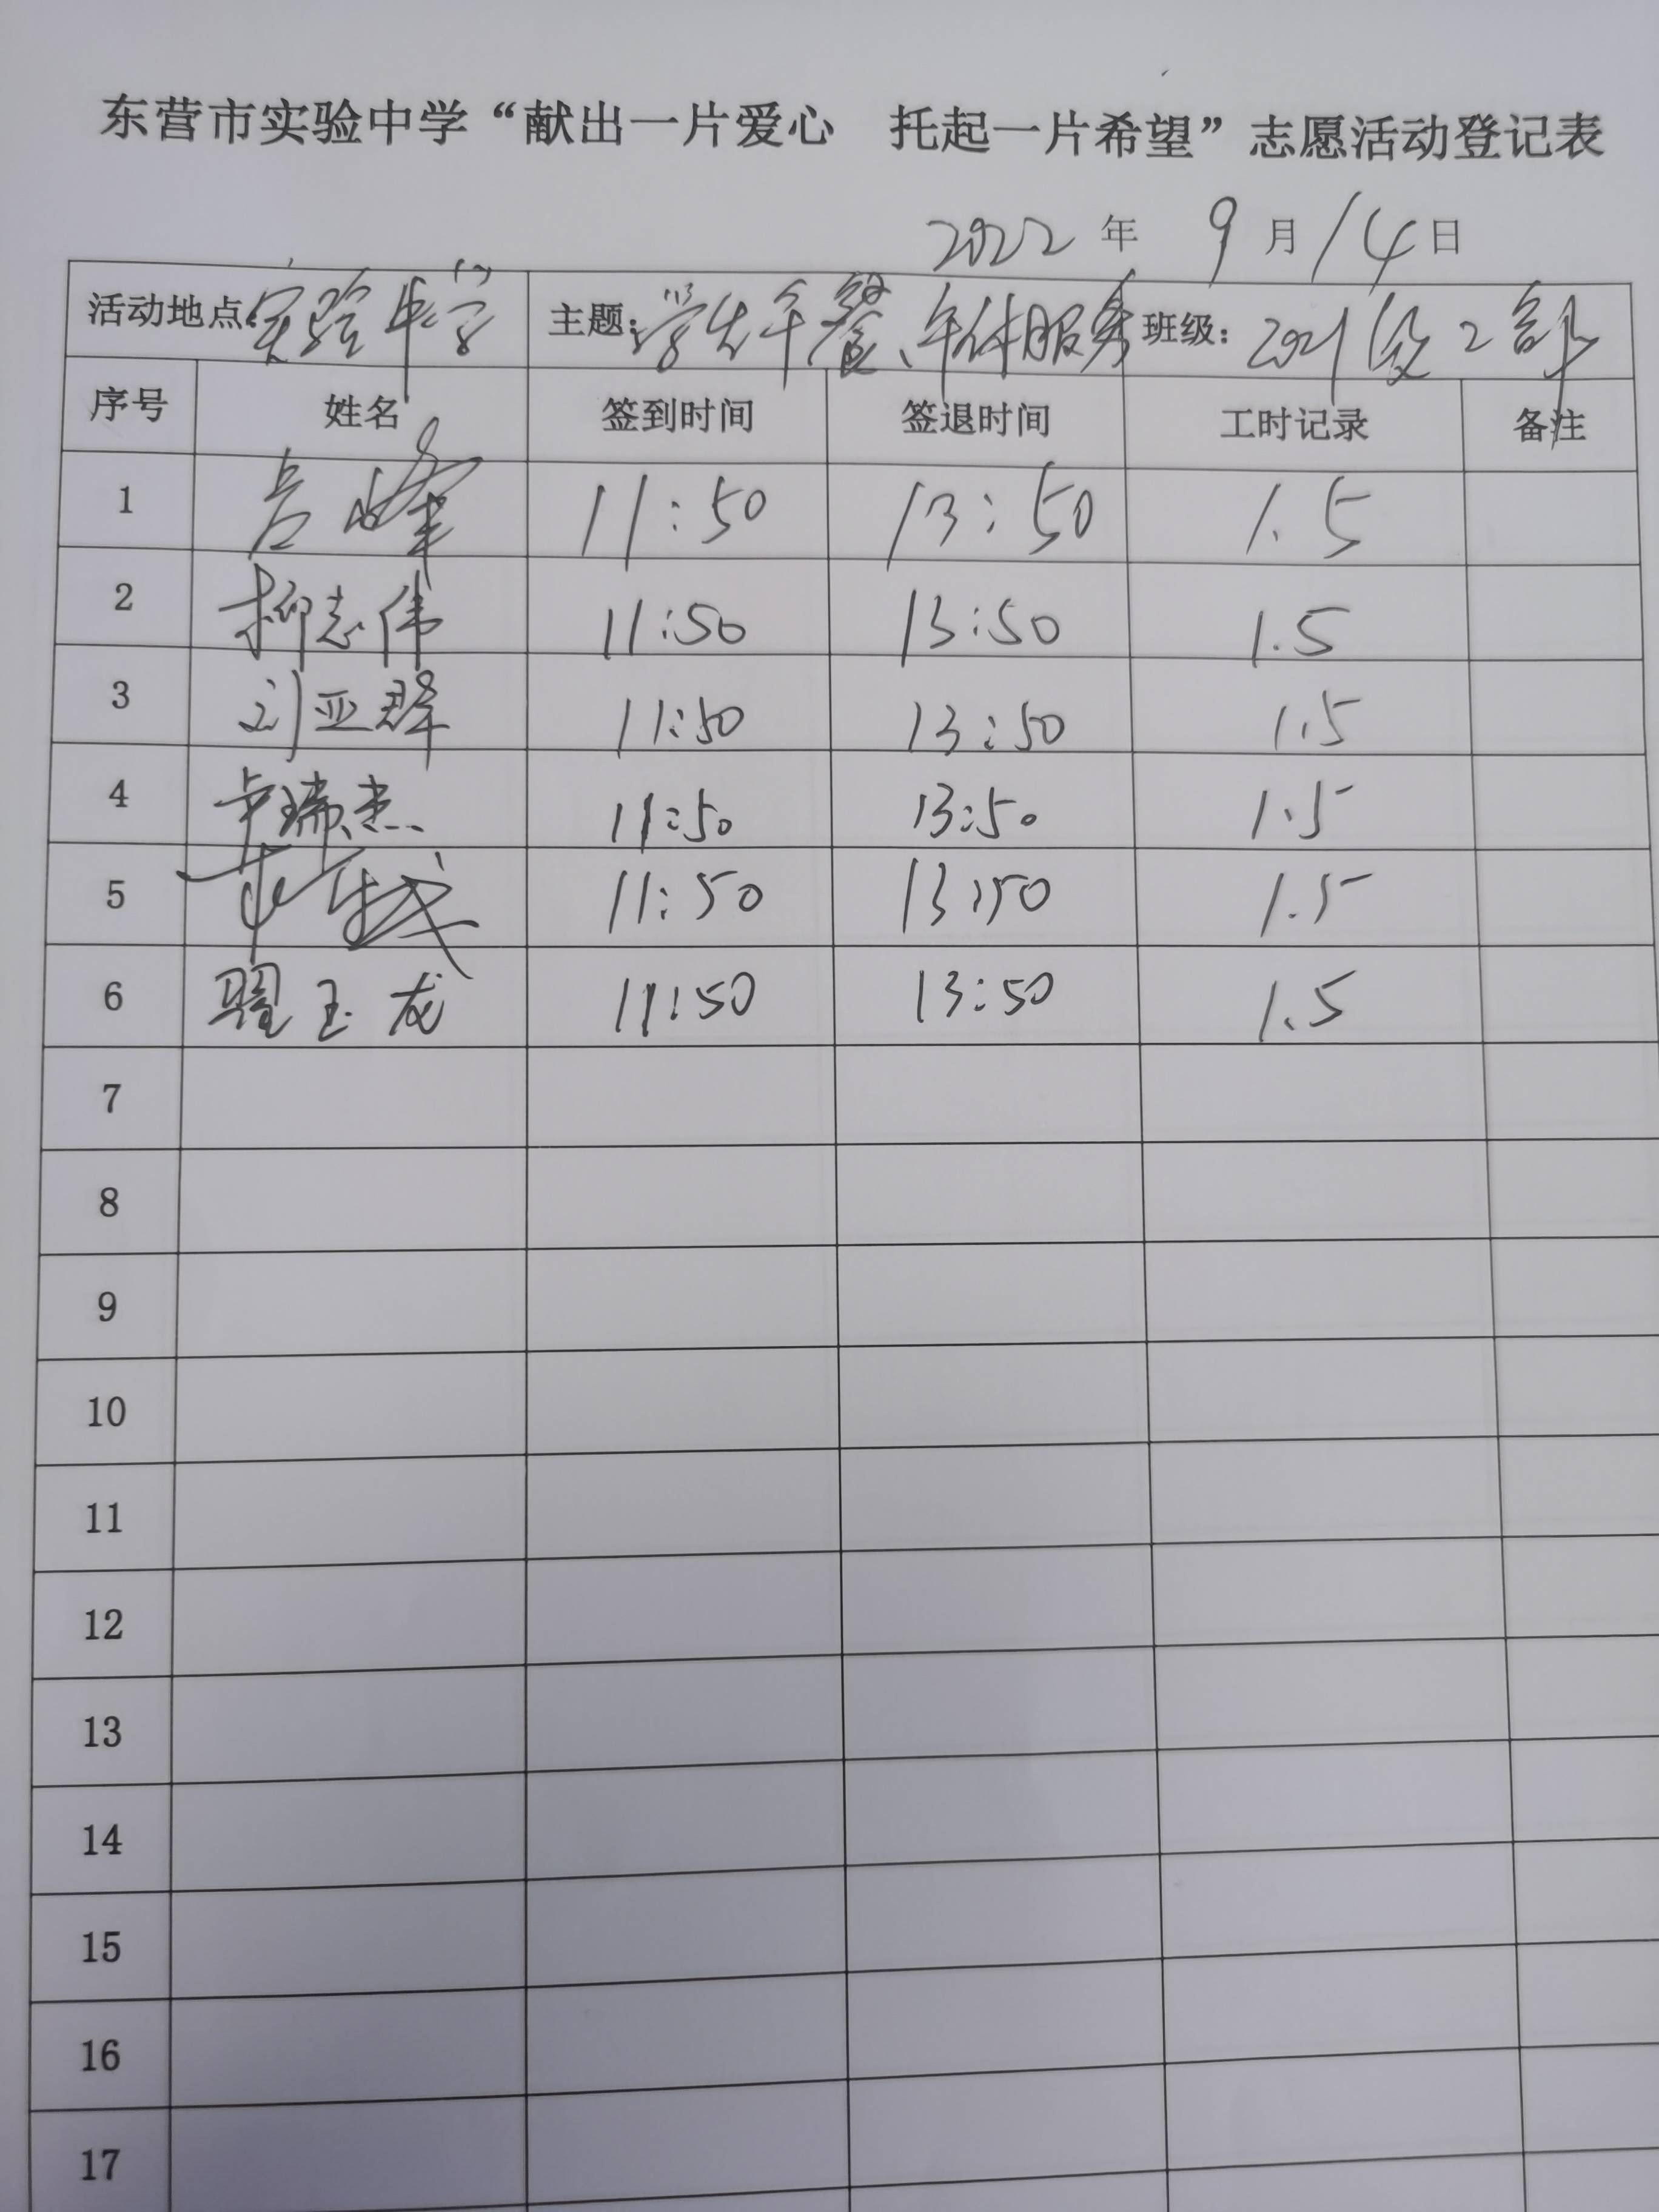 东营市实验中学“献出一片爱心 托起一片希望”志愿活动登记表
2022年 9月14日
活动地点:实验中学 主题:学生午餐、午休服务 班级:2021级2部
序号 姓名 签到时间 签退时间 工时记录 备注
1 吕峰 11:50 13:50 1.5
2 柳志伟 11:50 13:50 1.5
3 刘亚群 11:50 13:50 1.5
4 卞瑞杰 11:50 13:50 1.5
5 11:50 13:50 1.5
6 翟玉龙 11:50 13:50 1.5
7
8
9
10
11
12
13
14
15
16
17